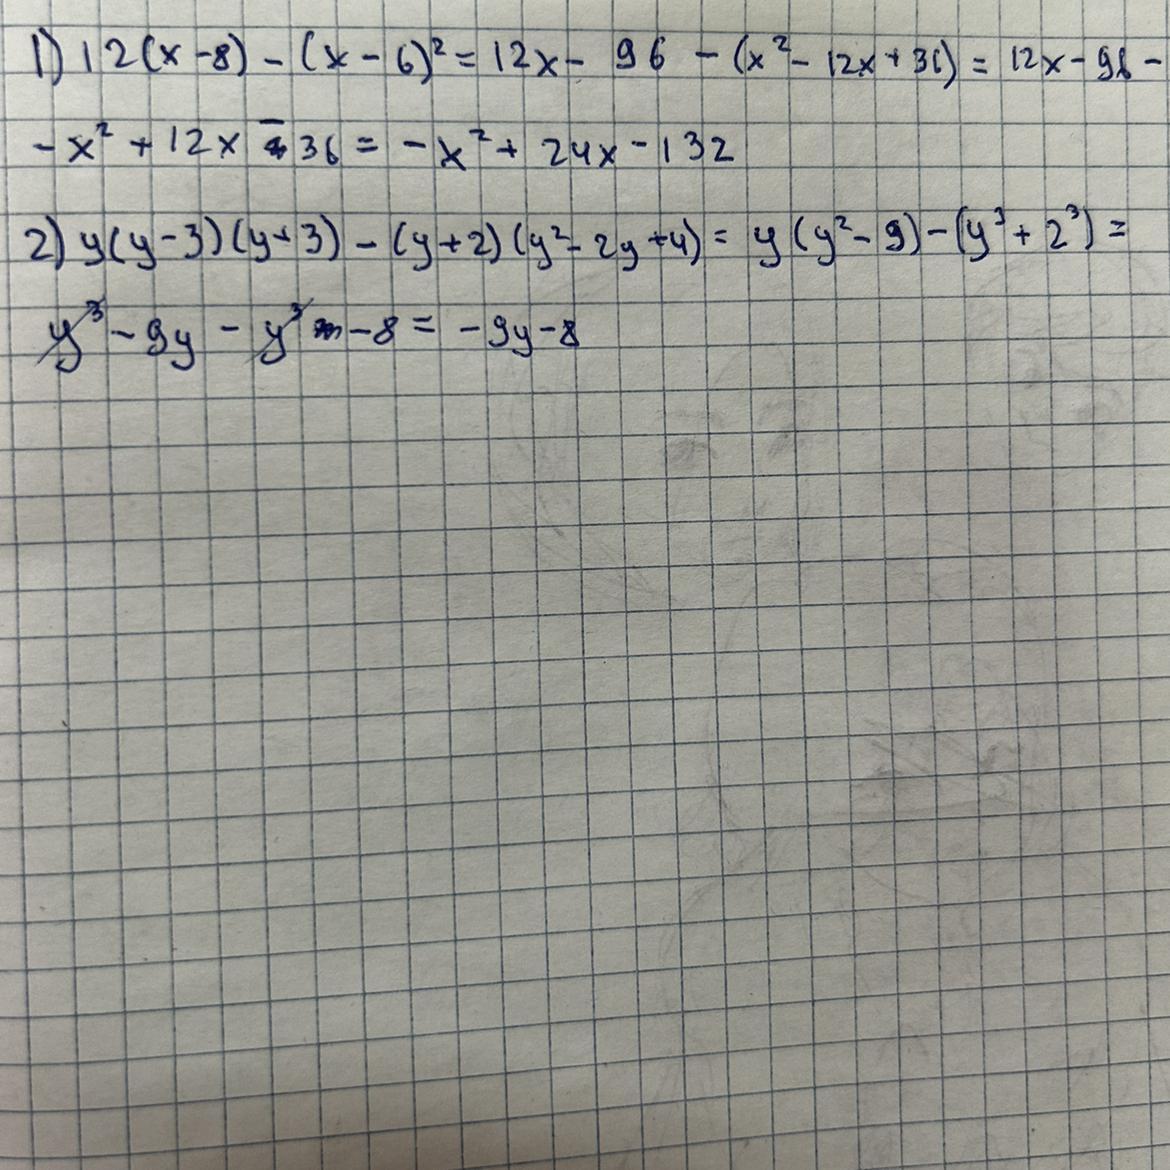 1) 12(x-8) - (x-6)² = 12x - 96 - (x² - 12x + 36) = 12x - 96 -
- x² + 12x - 36 = -x² + 24x - 132
2) y(y-3)(y+3) - (y+2)(y² - 2y + 4) = y(y² - 9) - (y³ + 2³) =
y³ - 9y - y³ - 8 = -9y - 8